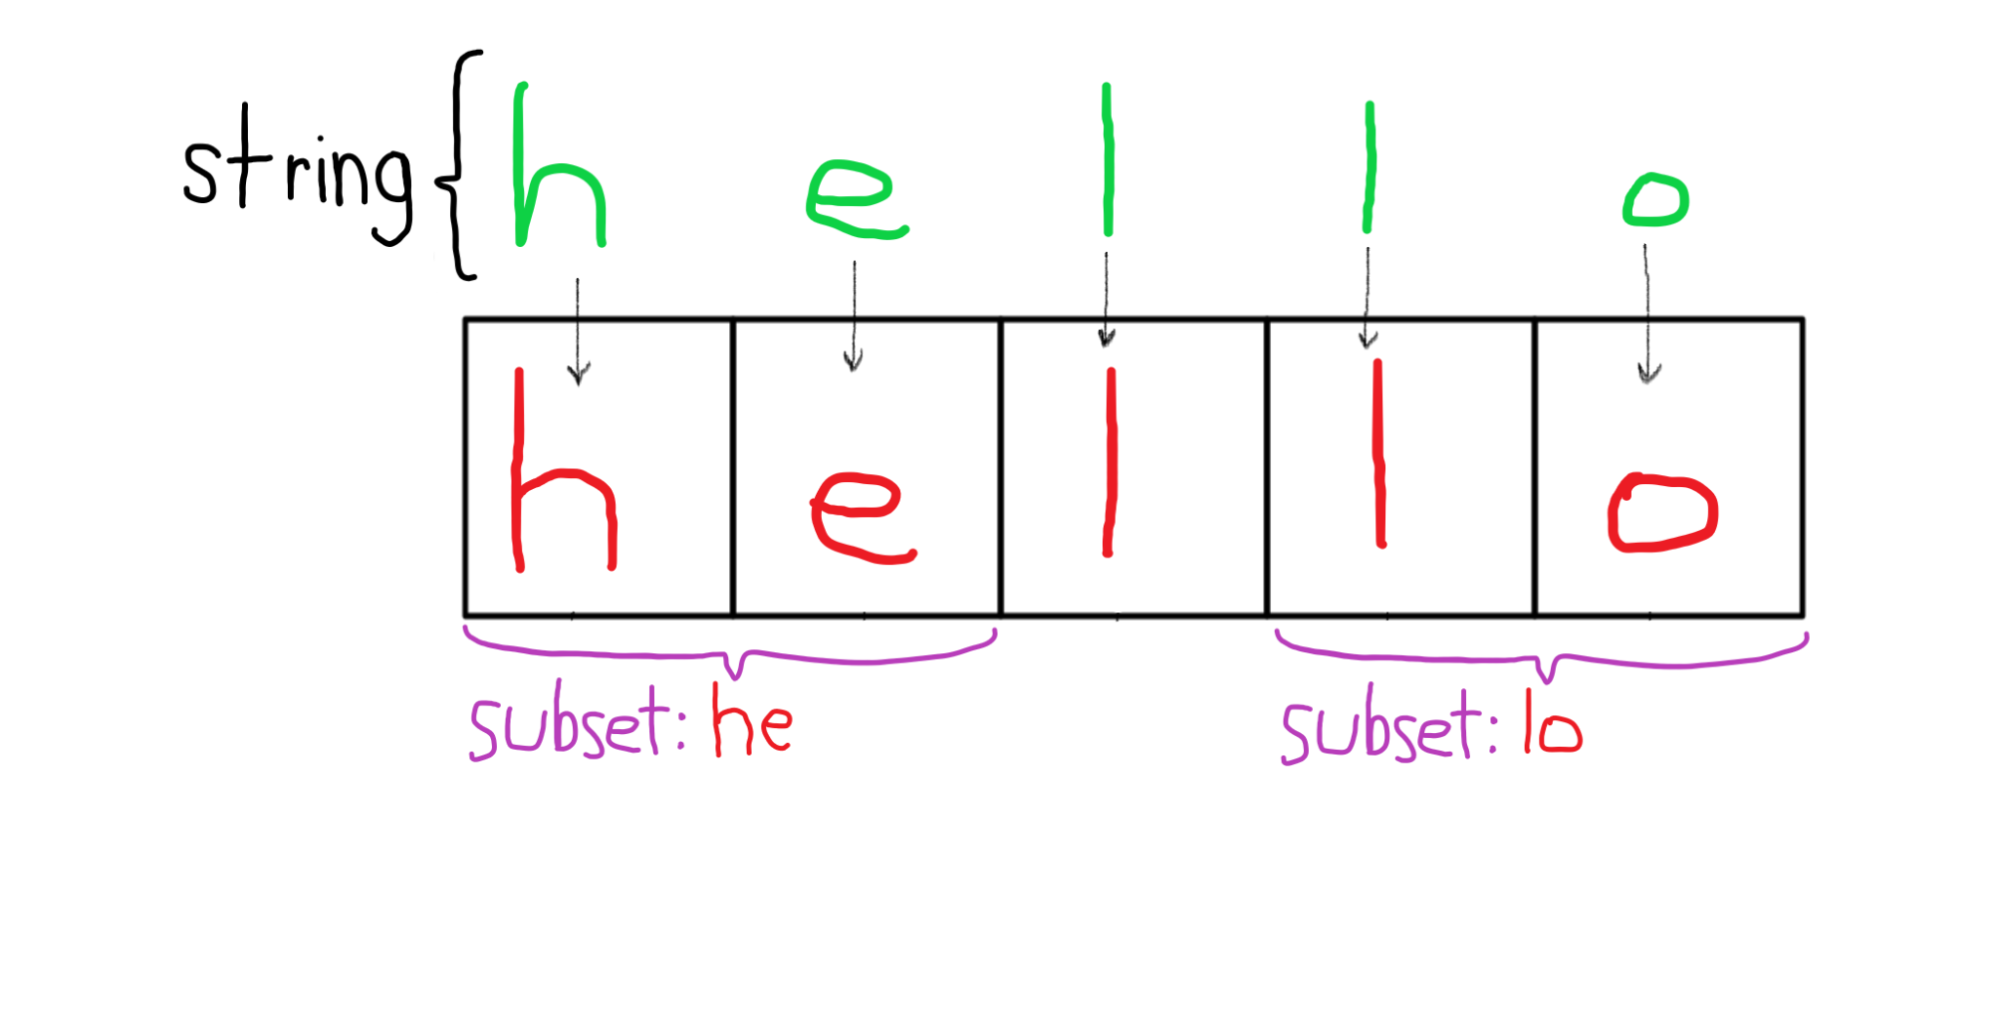 string { h e l l o
h e l l o
subset: he subset: lo